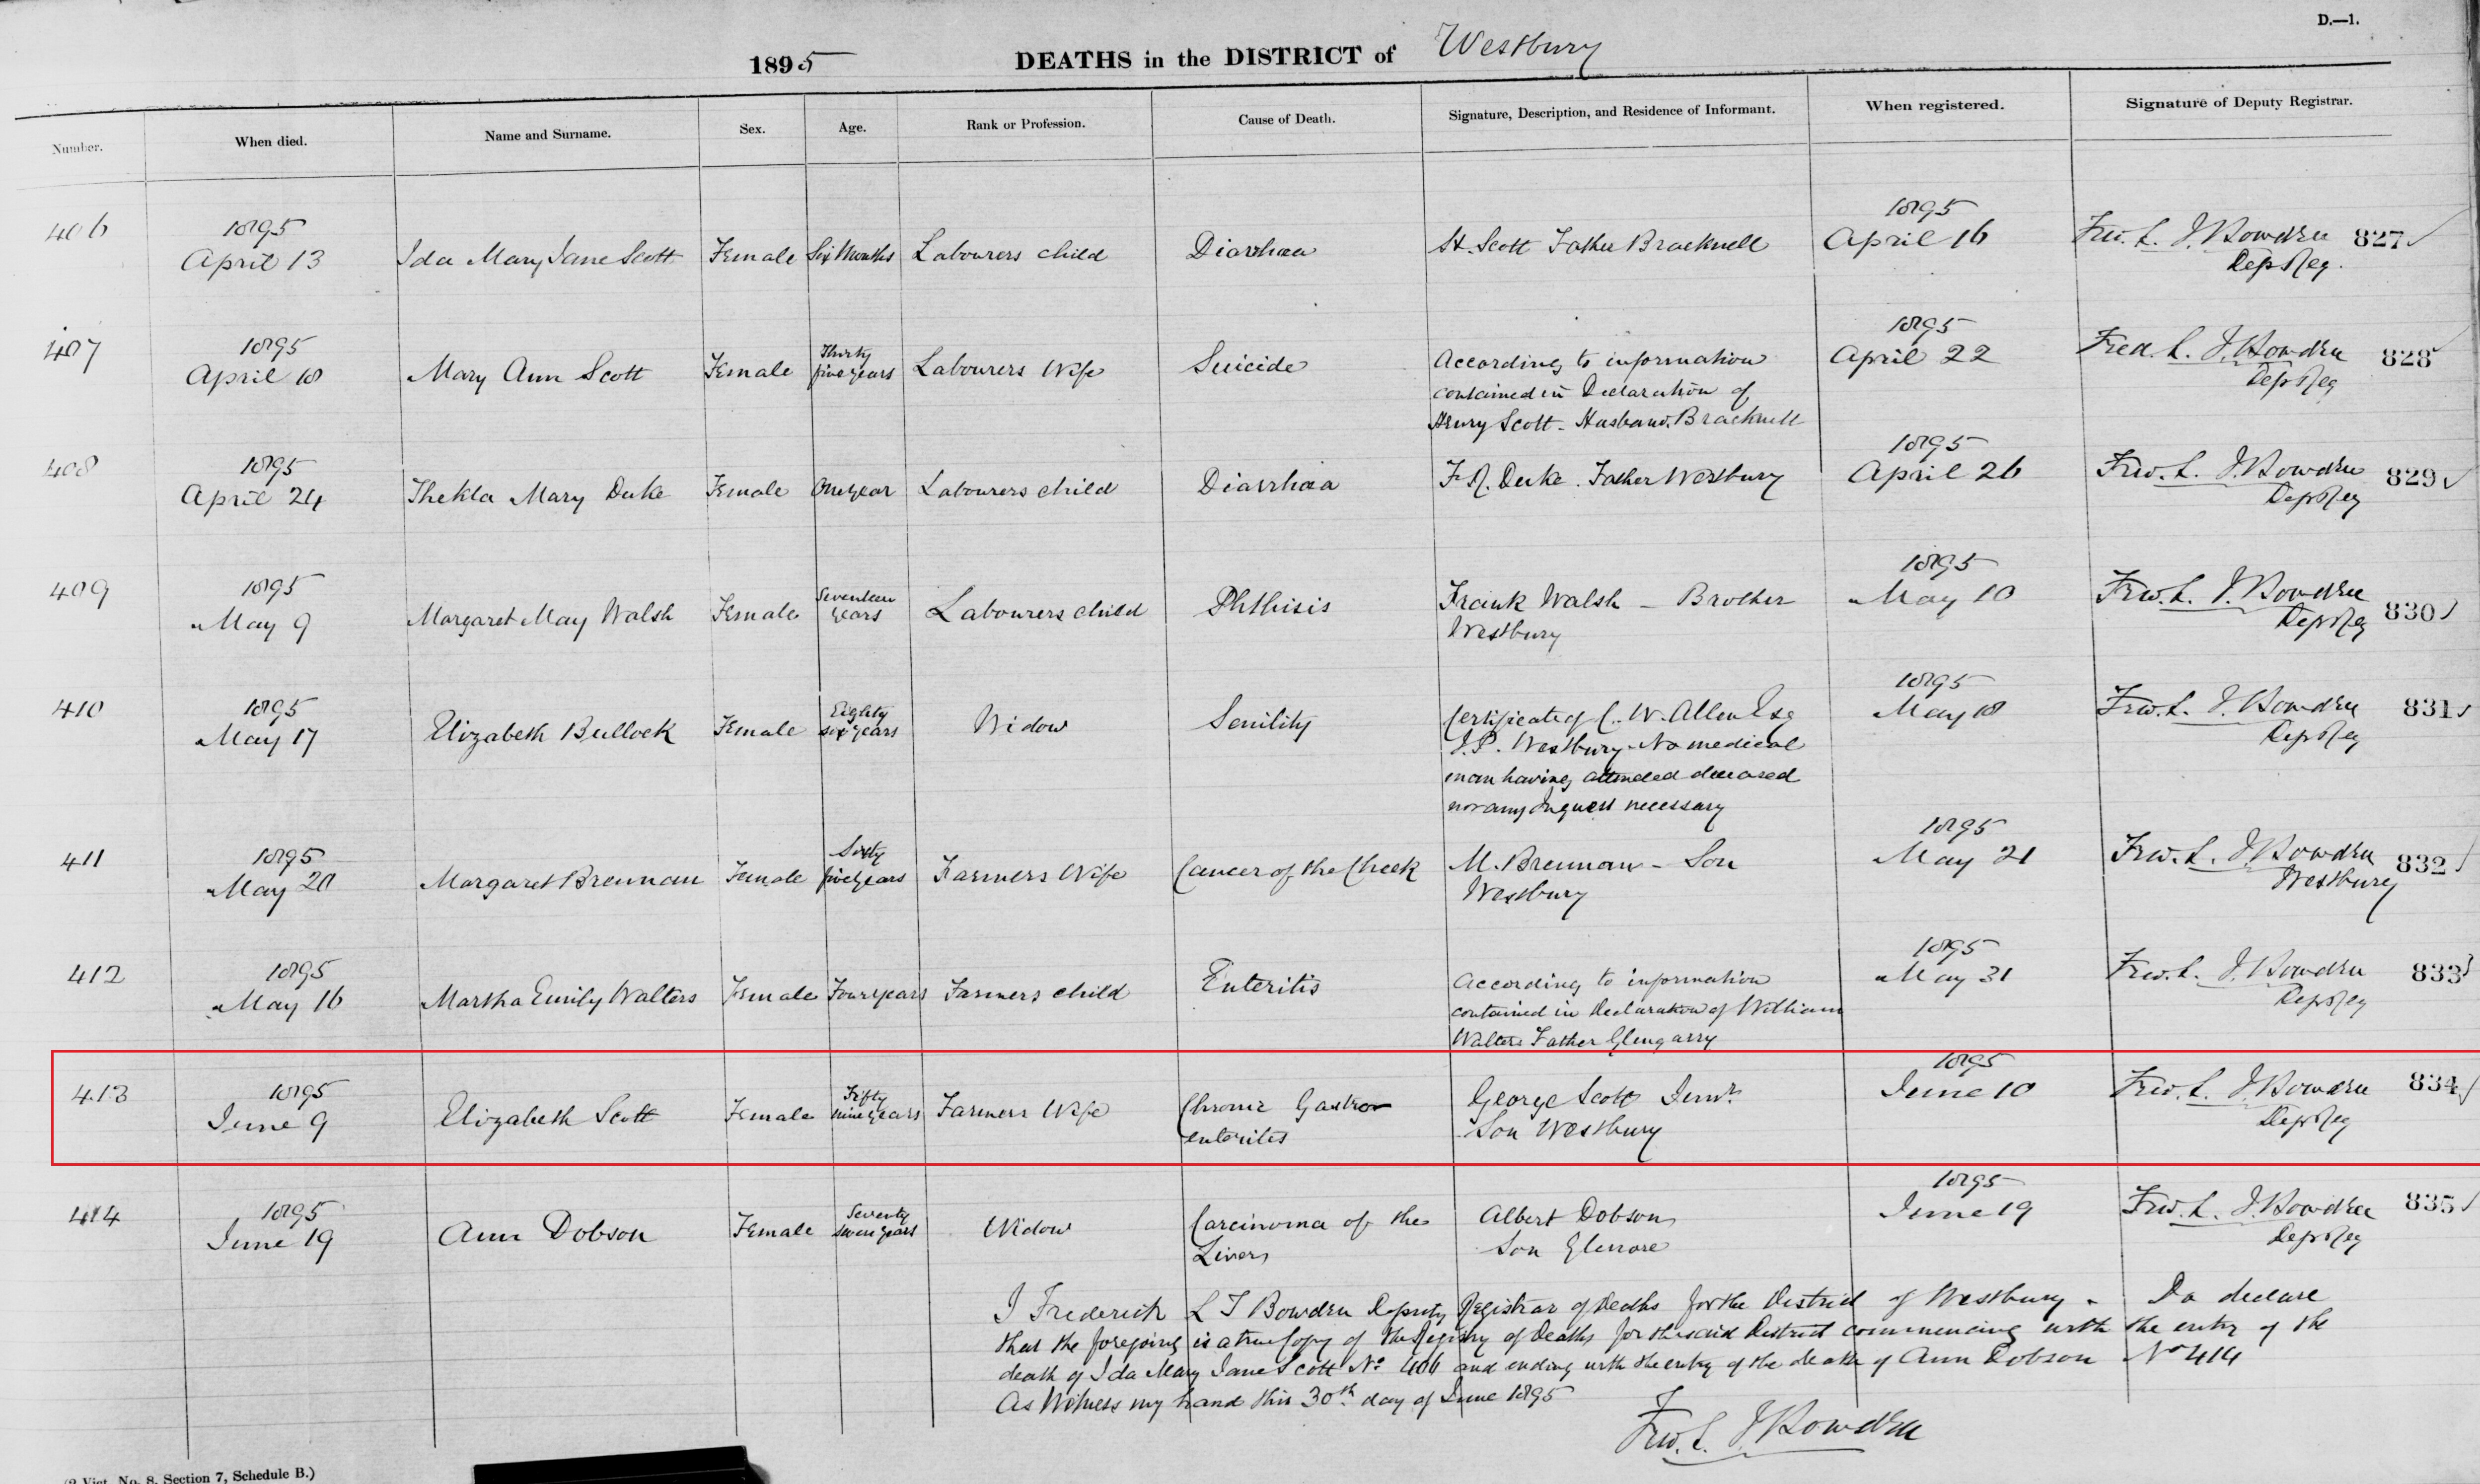 D.—1.
1895 DEATHS in the DISTRICT of Westbury
Number. When died. Name and Surname. Sex. Age. Rank or Profession. Cause of Death. Signature, Description, and Residence of Informant. When registered. Signature of Deputy Registrar.
406 1895 April 13 Ida Mary Jane Scott Female Six Months Labourers child Diarrhœa H. Scott Father Bracknell 1895 April 16 Fred. L. J. Bowden Dep Reg. 827
407 1895 April 18 Mary Ann Scott Female Thirty five years Labourers Wife Suicide According to information 1895 April 22 Fred. L. J. Bowden Dep Reg 828
contained in Declaration of
Henry Scott - Husband. Bracknell
408 1895 April 24 Thekla Mary Duke Female One year Labourers child Diarrhœa F. R. Duke. Father Westbury 1895 April 26 Fred. L. J. Bowden Dep Reg 829
409 1895 May 9 Margaret May Walsh Female Seventeen years Labourers child Phthisis Frank Walsh - Brother 1895 May 10 Fred. L. J. Bowden Dep Reg 830
Westbury
410 1895 May 17 Elizabeth Bullock Female Eighty six years Widow Senility Certificate of C. W. Allen Esq 1895 May 18 Fred. L. J. Bowden Dep Reg 831
J.P. Westbury. No medical
man having attended deceased
nor any Inquest necessary
411 1895 May 20 Margaret Brennan Female Sixty five years Farmers Wife Cancer of the Cheek M. Brennan - Son 1895 May 21 Fred. L. J. Bowden Westbury 832
Westbury
412 1895 May 16 Martha Emily Walters Female Four years Farmers child Enteritis According to information 1895 May 31 Fred. L. J. Bowden Dep Reg 833
contained in Declaration of William
Walters Father Glengarry
413 1895 June 9 Elizabeth Scott Female Fifty nine years Farmers Wife Chronic Gastro George Scott Junr. 1895 June 10 Fred. L. J. Bowden Dep Reg 834
enteritis Son Westbury
414 1895 June 19 Ann Dobson Female Seventy seven years Widow Carcinoma of the Albert Dobson 1895 June 19 Fred. L. J. Bowden Dep Reg 835
Liver Son Glenore
I Frederick L J Bowden Deputy Registrar of Deaths for the District of Westbury - Do declare
that the foregoing is a true Copy of the Registry of Deaths for the said District commencing with the entry of the
death of Ida Mary Jane Scott No 406 and ending with the entry of the death of Ann Dobson No 414
As Witness my hand this 30th day of June 1895
Fred. L. J. Bowden
(2 Vict. No. 8, Section 7, Schedule B.)